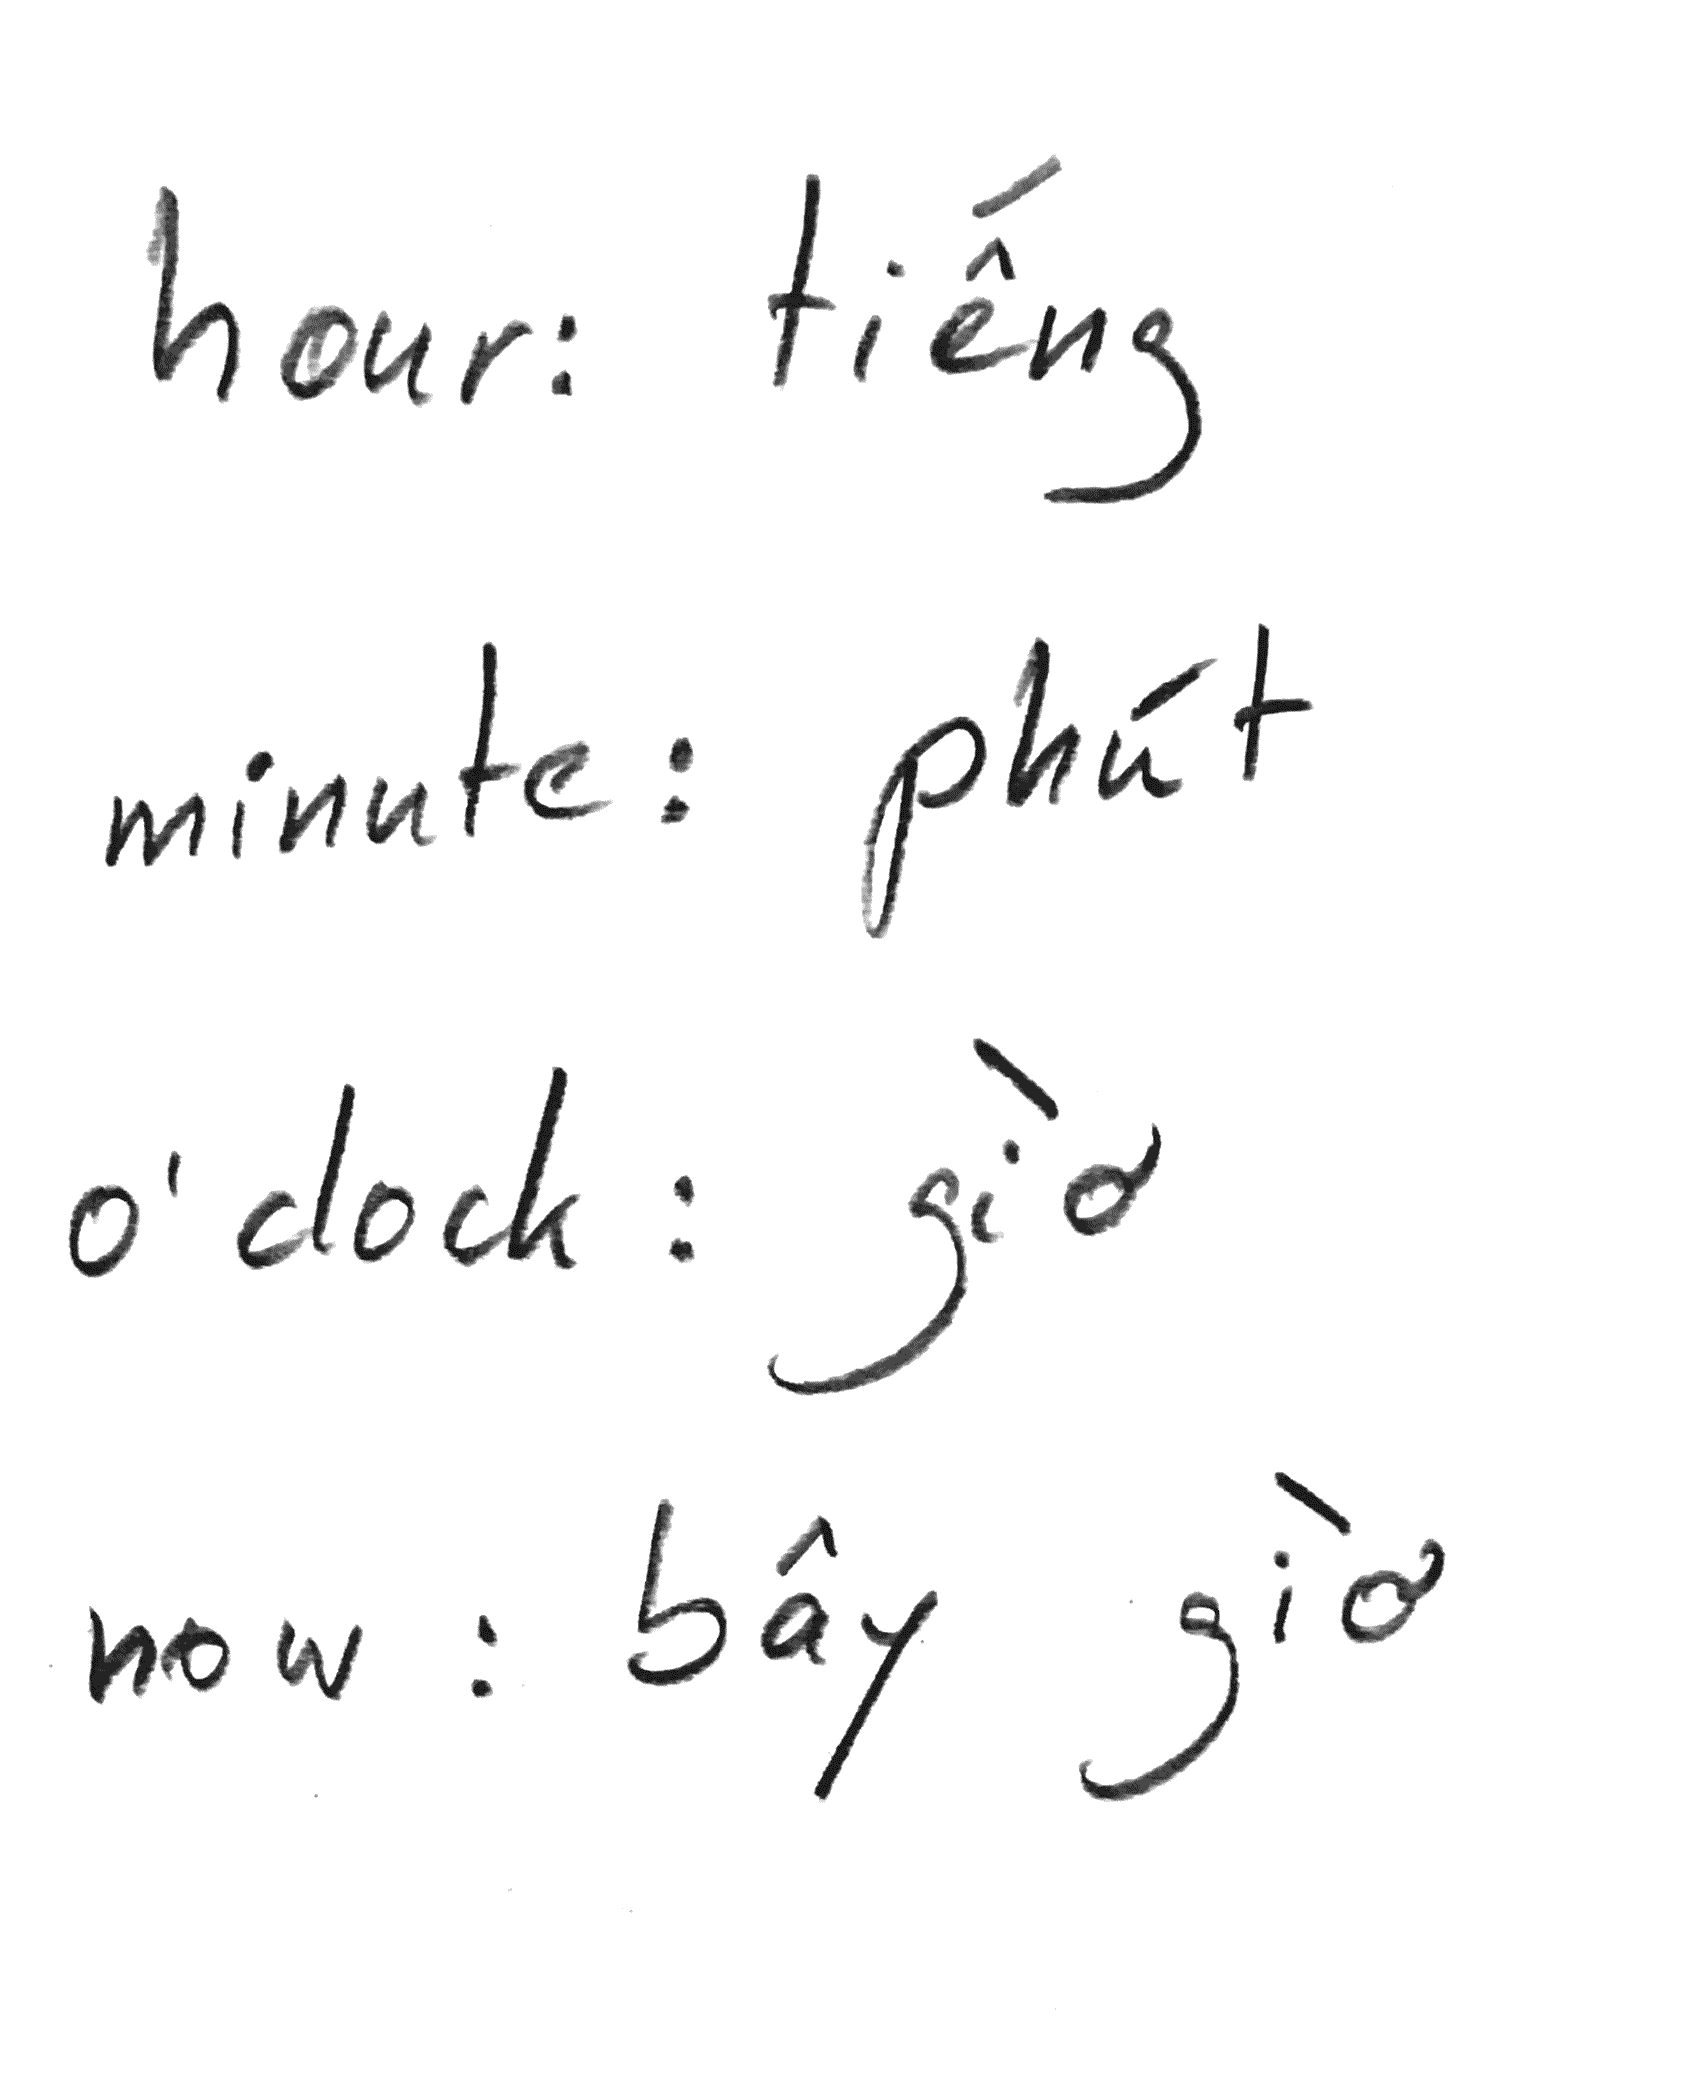 hour: tiếng
minute: phút
o'clock: giờ
now: bây giờ